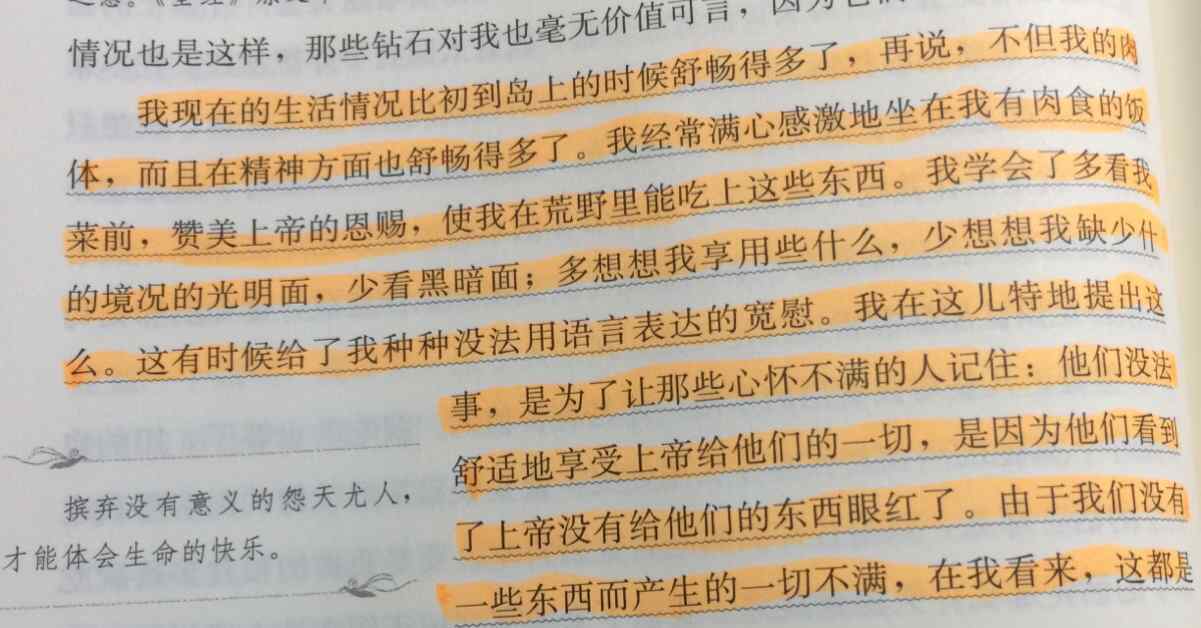 情况也是这样，那些钻石对我也毫无价值可言，因为它们
我现在的生活情况比初到岛上的时候舒畅得多了，再说，不但我的肉
体，而且在精神方面也舒畅得多了。我经常满心感激地坐在我有肉食的饭
菜前，赞美上帝的恩赐，使我在荒野里能吃上这些东西。我学会了多看我
的境况的光明面，少看黑暗面；多想想我享用些什么，少想想我缺少什
么。这有时候给了我种种没法用语言表达的宽慰。我在这儿特地提出这
事，是为了让那些心怀不满的人记住：他们没法
舒适地享受上帝给他们的一切，是因为他们看到
了上帝没有给他们的东西眼红了。由于我们没有
一些东西而产生的一切不满，在我看来，这都是
摈弃没有意义的怨天尤人，
才能体会生命的快乐。